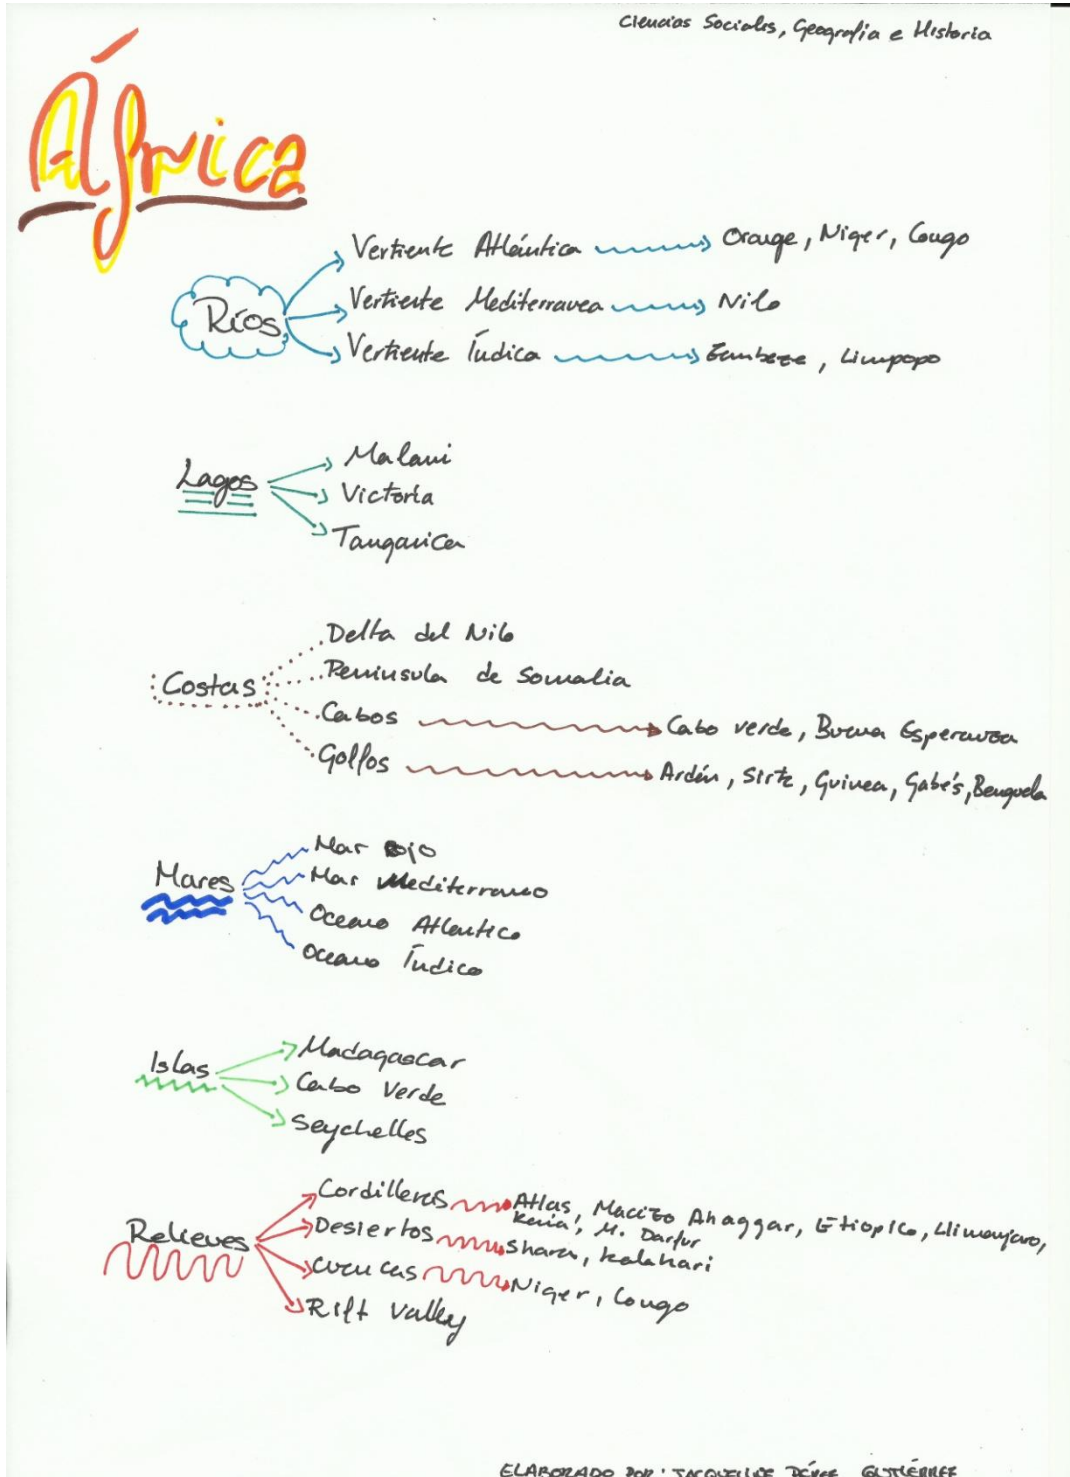 Ciencias Sociales, Geografía e Historia
África
Ríos
Vertiente Atlántica Orange, Niger, Congo
Vertiente Mediterranea Nilo
Vertiente Índica Zambeze, Limpopo
Lagos
Malaui
Victoria
Tanganica
Costas
Delta del Nilo
Peninsula de Somalia
Cabos Cabo verde, Buena Esperanza
Golfos Ardén, Sirte, Guinea, Gabés, Benguela
Mares
Mar Rojo
Mar Mediterraneo
Oceano Atlantico
Oceano Índico
Islas
Madagascar
Cabo Verde
Seychelles
Relieves
Cordilleras Atlas, Macizo Ahaggar, Etiopico, Llimanjaro,
Kenia, M. Darfur
Desiertos Shara, Kalahari
Cuencas Niger, Congo
Rift Valley
ELABORADO POR: JACQUELINE PÉREZ GUTIÉRREZ